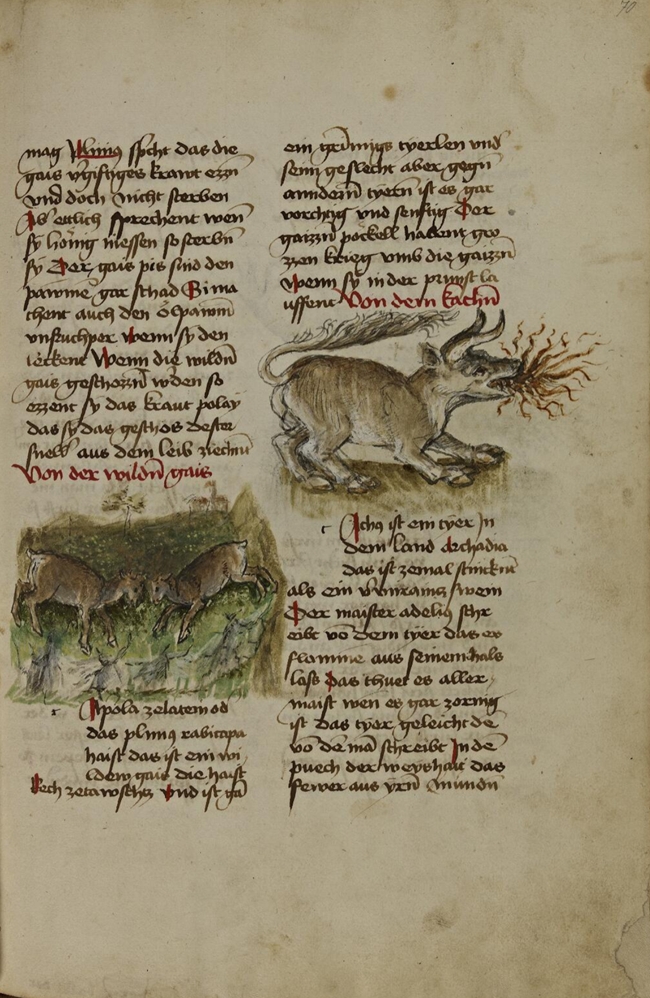 70
mag Plinius spricht das die
gais vergiftiges kraut ezzn
vnd doch nicht sterben
Als ettlich sprechent wen
sy hönig niessen so sterbn
sy Der gais pis sind den
pawmen gar schad Si ma
chent auch den ölpawm
vnfruchper wenn sy den
leckent Wenn die wildn
gais geschozzn wden so
ezzent sy das kraut polay
das sy das geschos dester
snell aus dem leib ziechnn
Von der wildn gais
das plinius
haist das ist ein wi
ldew gais die haist
Vnd ist gar
ein grimigs tyerlen vnd
seim geslecht aber gegn
anndern tyern ist es gar
vorchtig vnd senftig Der
gaizzn pöckell habent gro
zzen krieg vmb die gaizzn
wenn sy in der prunst la
uffent Von dem kachn
Achus ist ein tyer Jn
dem land Archadia
das ist zemal stinckn
als ein swein
Der maister adelin schr
eibt vo dem tyer das es
flamme aus seinem hals
lass Das thuet es aller
maist wen es gar zornig
ist das tyer geleicht de
vo de man schreibt Jn de
puech der weyshait das
fewer aus yrn mundn